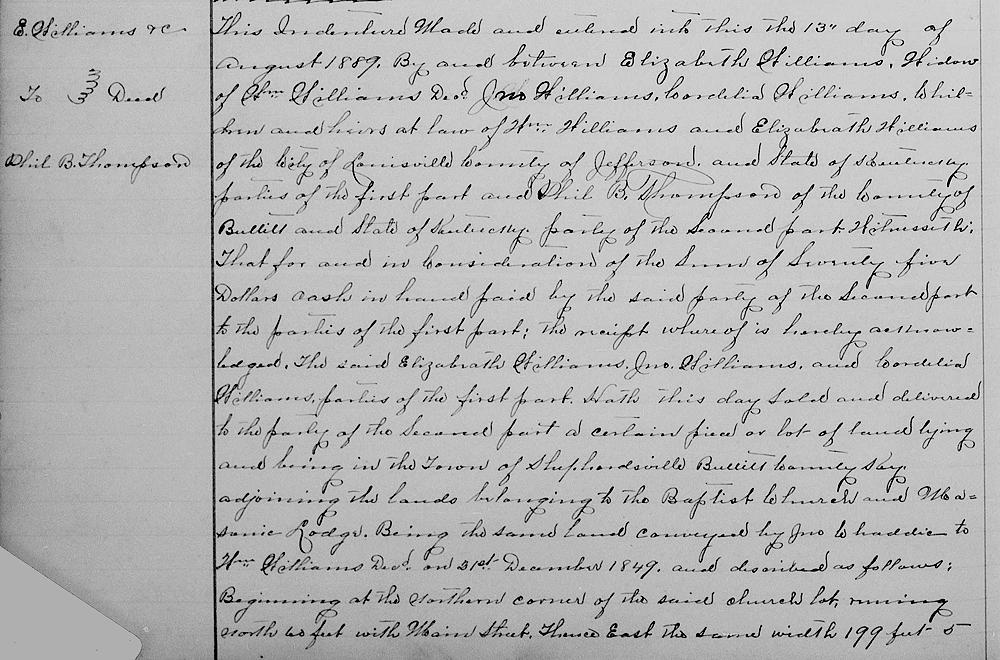 E. Williams &c
To Deed
Phil B. Thompson
This Indenture Made and entered into this the 13" day of
August 1889. By and between Elizabeth Williams, Widow
of Wm Williams Decd. Jno Williams, Cordelia Williams, Chil=
dren and heirs at law of Wm Williams and Elizabeath Williams
of the City of Louisville County of Jefferson, and State of Kentucky.
parties of the first part and Phil B. Thompson of the County of
Bullitt and State of Kentucky. party of the second part Witnesseth:
That for and in Consideration of the Sum of Seventy five
Dollars cash in hand paid by the said party of the Second part
to the parties of the first part; the receipt where of is hereby acknow=
ledged, The said Elizabeath Williams, Jno. Williams, and Cordelia
Williams, parties of the first part. Hath this day Sold and delivered
to the party of the Second part a certain piece or lot of land lying
and being in the Town of Shepherdsville Bullitt County Ky.
adjoining the lands belonging to the Baptist Church and Ma=
sonic Lodge. Being the same land conveyed by Jno Chaddic to
Wm Williams Decd. on 31st December 1849. and discribed as follows;
Beginning at the northern corner of the said church lot, runing
north 60 feet with Main Street, Thence East the same width 199 feet 5